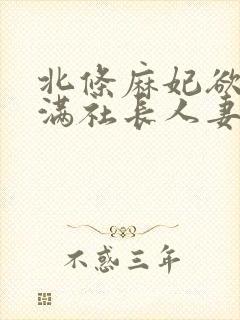 北條麻妃欲
满社长人妻
不惑三年